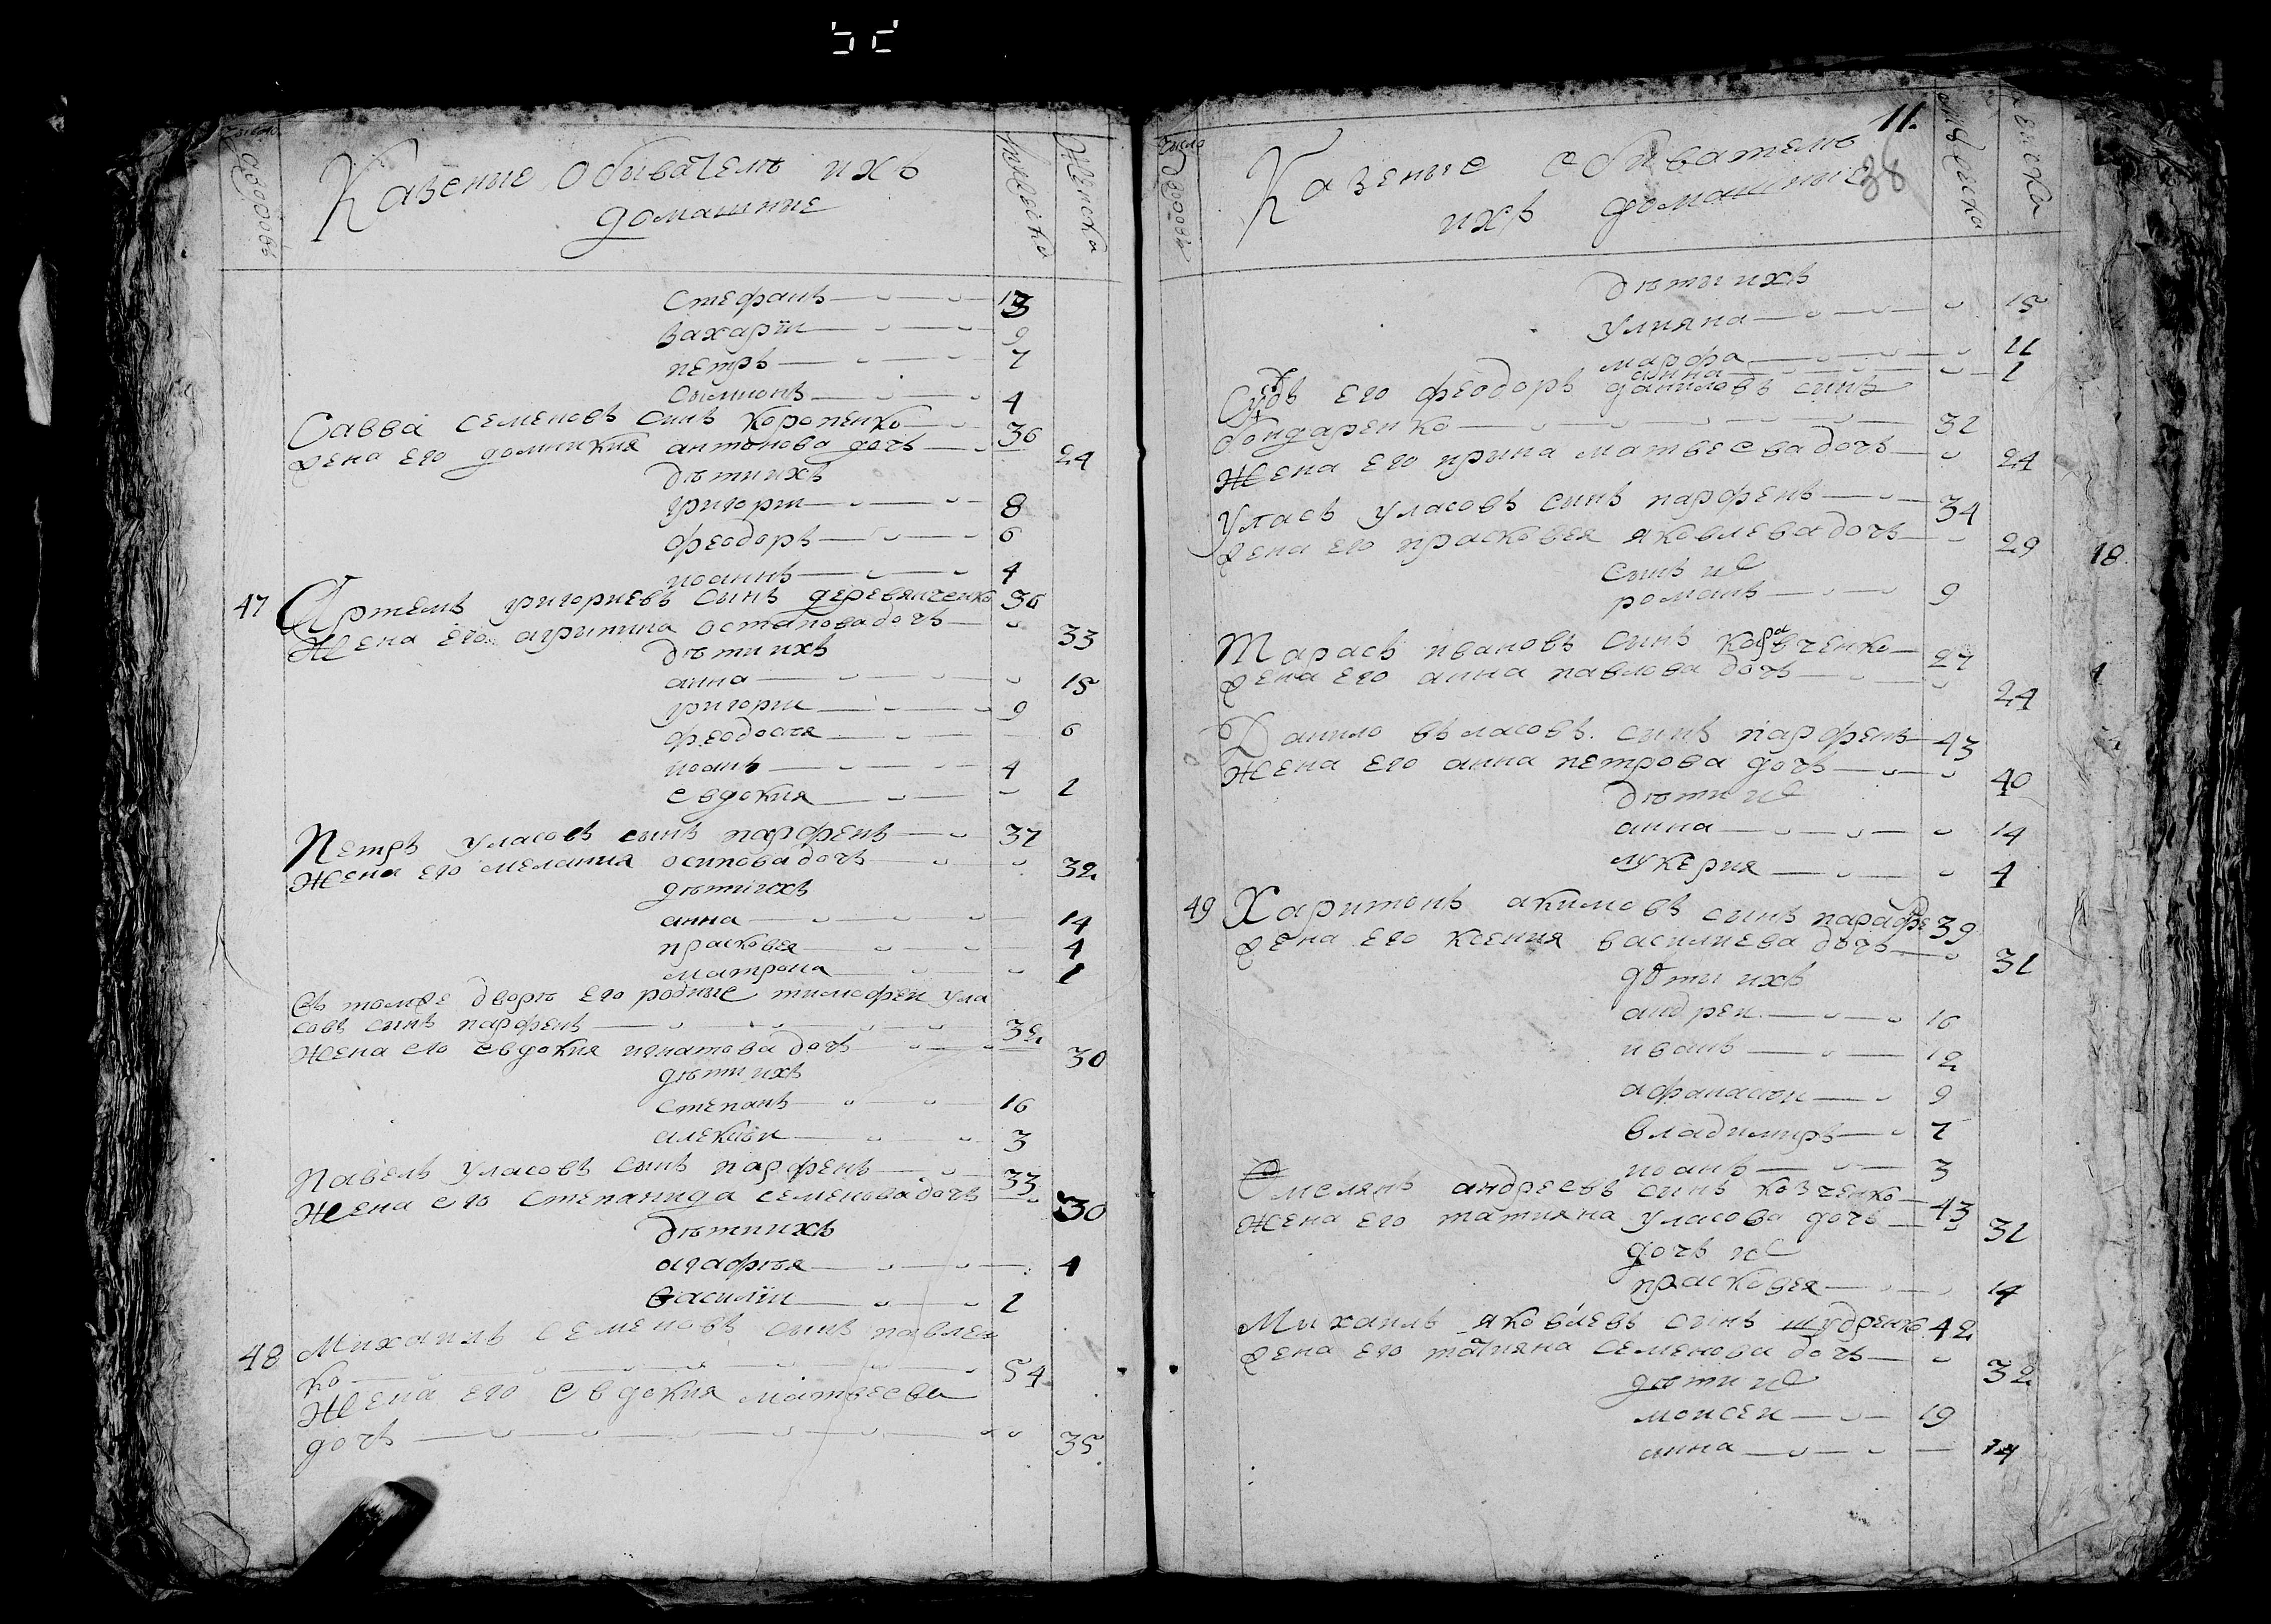 число
дворовъ
Казеные обивателѣ ихъ
домашние
мужеска
женска
Стефанъ 13
Захарїи 9
петръ 7
Сымионъ 4
Савва семеновъ синъ коропенко 36
жена его домникия антонова дочъ 24
дѣти ихъ
григори 8
феодоръ 6
иоаннъ 4
47 Артемъ григориевъ сынъ деревянченко 36
Жена его агрипина остапова дочъ 33
дѣти ихъ
анна 15
григори 9
феодосия 6
иоанъ 4
евдокия 2
Петръ Уласовъ сынъ парфенъ 37
Жена его мелания осипова дочъ 32
дѣти ихъ
анна 14
прасковея 4
матрона 1
Въ томже дворѣ его родные тимофеи ула
совъ синъ парфенъ 32
Жена его Евдокия игнатова дочъ 30
дѣти ихъ
степанъ 16
алексѣи 3
Павелъ Уласовъ сынъ парфенъ 33
Жена его степанида семенова дочъ 30
дѣти ихъ
агафия 4
Василїи 2
48 Михаилъ семеновъ сынъ павлен
ко 54
Жена его Евдокия матвеева
дочъ 35
11.
38
число
дворовъ
Казеные обивателѣ
ихъ домашные
мужеска
женска
дѣти ихъ
Улияна 15
марфа 11
анна 1
его феодоръ даниловъ синъ
бондаренко 32
Жена его ирина матвеева дочъ 24
Уласъ уласовъ сынъ парфенъ 34
жена его прасковея яковлева дочъ 29
18
сынъ их
романъ 9
Тарасъ ивановъ синъ кравченко 27
жена его анна павлова дочъ 24
Данило власовъ синъ парфенъ 43
Жена его анна петрова дочъ 40
дѣти их
анна 14
лукерия 4
49 Харитонъ акимовъ синъ парафе 39
жена его ксения василиева дочъ 31
дѣти ихъ
андреи 16
иванъ 12
афанасии 9
владимиръ 7
иоанъ 3
Омелянъ андреевъ синъ козченко 43
Жена его татияна Уласова дочъ 32
дочъ их
прасковея 14
Михаилъ яковлевъ синъ шудренко 42
жена его татияна семенова дочъ 32
дѣти их
моисеи 19
анна 14